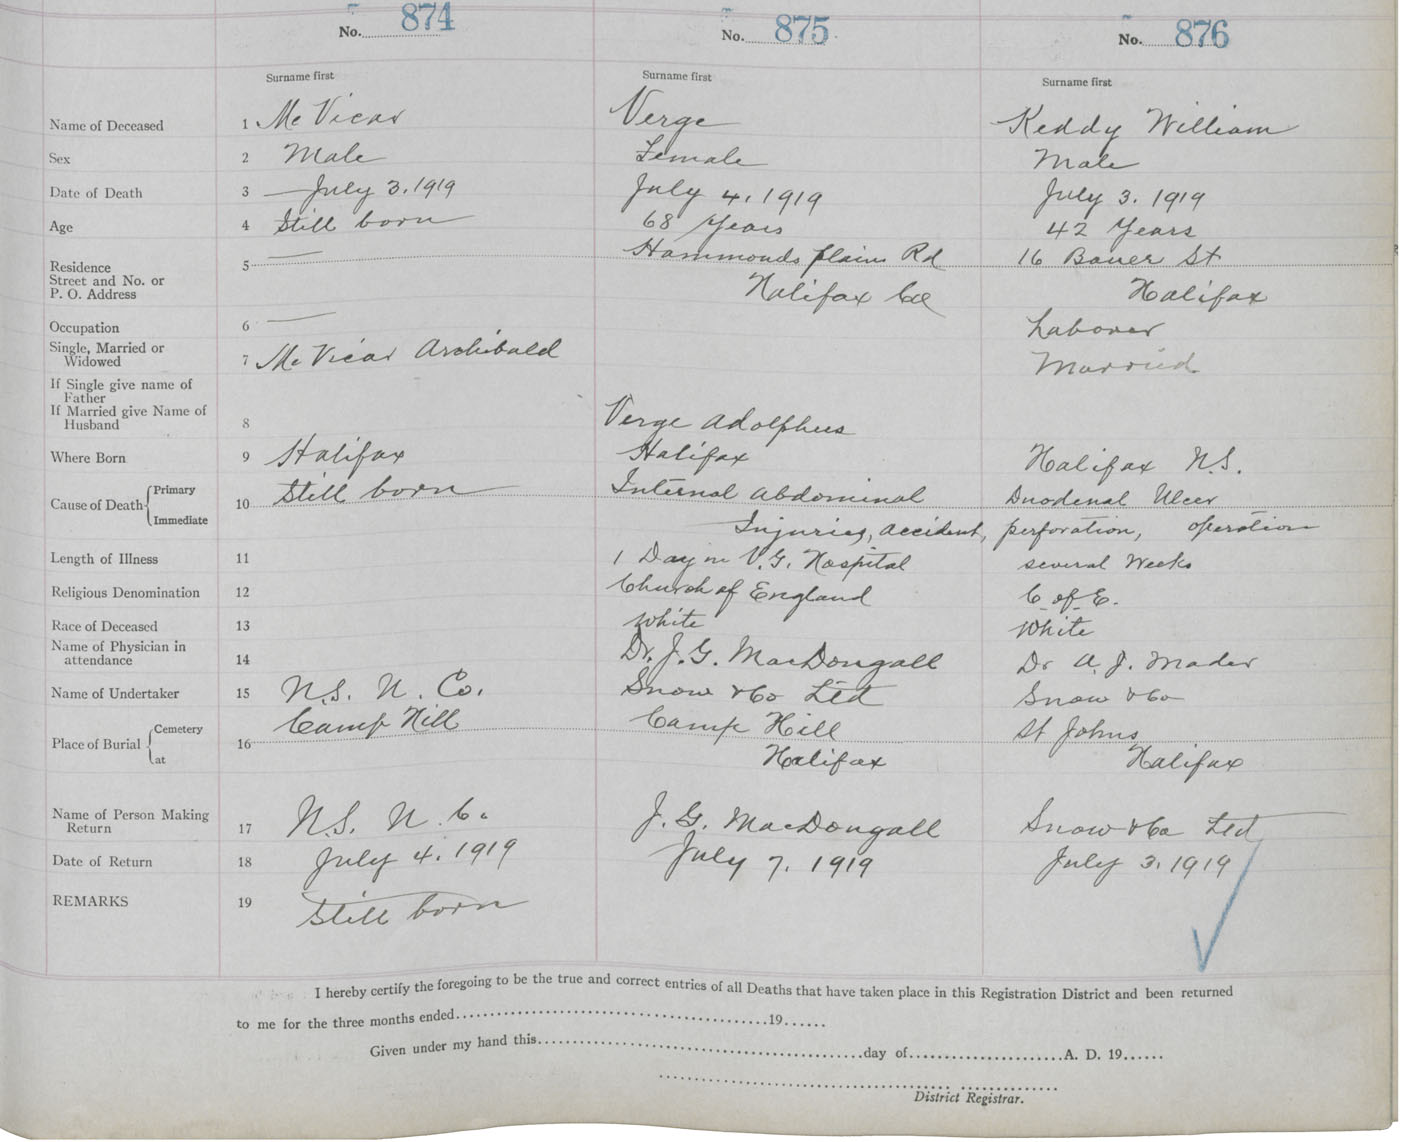 No. 874 No. 875 No. 876
Surname first Surname first Surname first
Name of Deceased 1 Mc Vicar Verge Keddy William
Sex 2 Male Female Male
Date of Death 3 July 3. 1919 July 4. 1919 July 3. 1919
Age 4 Still born 68 Years 42 Years
Residence 5 Hammonds plains Rd 16 Bauer St
Street and No. or
P. O. Address Halifax Co Halifax
Occupation 6 Laborer
Single, Married or
Widowed 7 Mc Vicar Archibald Married
If Single give name of
Father
If Married give Name of
Husband 8 Verge Adolphus
Where Born 9 Halifax Halifax Halifax N.S.
Cause of Death Primary 10 Still born Internal Abdominal Duodenal Ulcer
Immediate Injuries, accident, perforation, operation
Length of Illness 11 1 Day in V.G. Hospital several Weeks
Religious Denomination 12 Church of England C. of E.
Race of Deceased 13 White White
Name of Physician in
attendance 14 Dr. J. G. MacDougall Dr A. J. Mader
Name of Undertaker 15 N.S. U. Co. Snow & Co Ltd Snow & Co
Place of Burial Cemetery 16 Camp Hill Camp Hill St Johns
at Halifax Halifax
Name of Person Making
Return 17 N.S. U Co. J. G. MacDougall Snow & Co Ltd
Date of Return 18 July 4. 1919 July 7. 1919 July 3. 1919
REMARKS 19 Still born
I hereby certify the foregoing to be the true and correct entries of all Deaths that have taken place in this Registration District and been returned
to me for the three months ended 19
Given under my hand this day of A. D. 19
District Registrar.